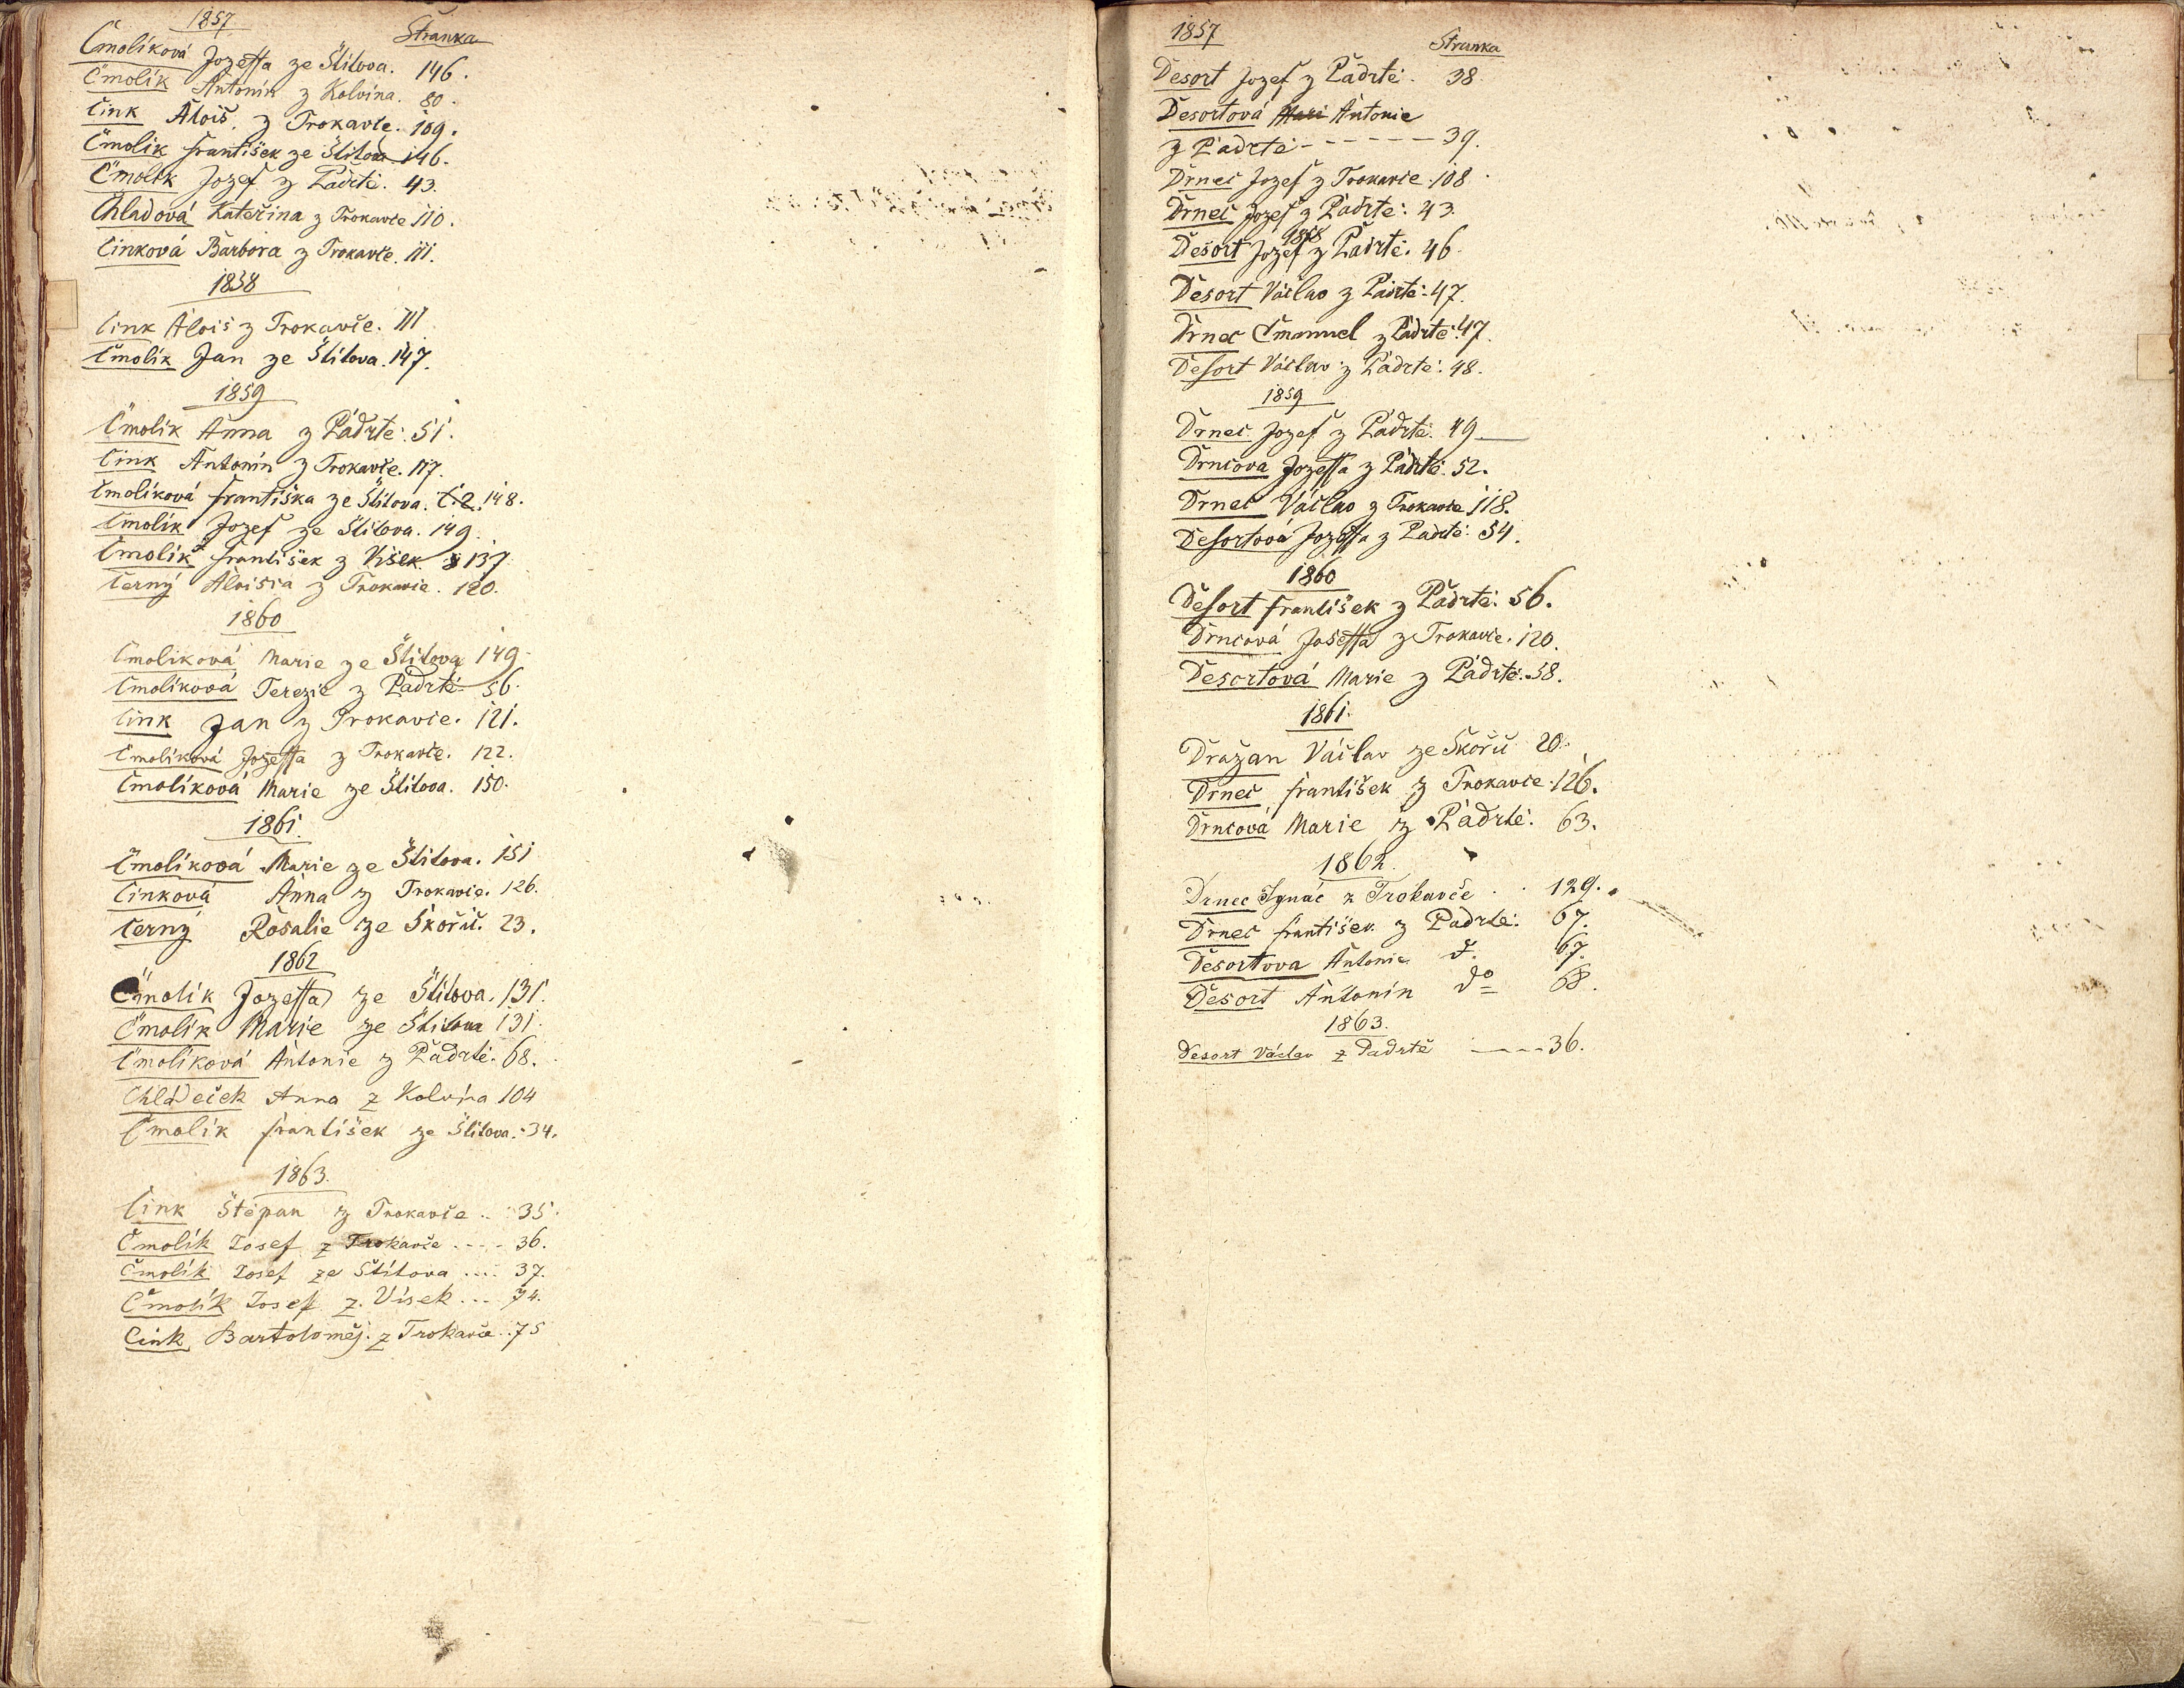 1857 Stranka
Čmolíková Jozeffa ze Štítova. 146.
Čmolík Antonín z Kolvína. 80.
Cink Alois. z Trokavče. 109.
Čmolík František ze Štítova 146.
Čmolík Jozef z Padrtě. 43.
Chladová Kateřina z Trokavče 110.
Cinková Barbora z Trokavče. 111.
1858
Cink Alois z Trokavče. 111
Čmolík Jan ze Štítova. 147.
1859
Čmolík Anna z Padrtě. 51.
Cink Antonín z Trokavče. 117.
Čmolíková Františka ze Štítova. č. 2. 148.
Čmolík Jozef ze Štítova. 149.
Čmolík František z Víšek 137
Černý Aloisia z Trokavče. 120.
1860
Čmolíková Marie ze Štítova 149
Čmolíková Terezie z Padrtě 56.
Cink Jan z Trokavče. 121.
Čmolíková Jozeffa z Trokavče. 122.
Čmolíková Marie ze Štítova. 150.
1861.
Čmolíková Marie ze Štítova. 151
Cinková Anna z Trokavče. 126.
Černý Rosalie ze Skořic. 23.
1862
Čmolík Jozeffa ze Štítova. 131.
Čmolík Marie ze Štítova 131.
Čmolíková Antonie z Padrtě. 68.
Chládeček Anna z Kolvína 104
Čmolík František ze Štítova. 34.
1863.
Cink Štěpan z Trokavče .. 35.
Čmolík Josef z Trokavče .... 36.
Čmolík Josef ze Štítova .... 37.
Čmolík Josef z. Vísek ... 74.
Cink Bartoloměj. z Trokavče .. 75
1857 Stranka
Desort Jozef z Padrtě. 38
Desortová Mari Antonie
z Padrtě ------ 39.
Drnec Jozef z Trokavče 108
Drnec Jozef z Padrtě. 43.
1858
Desort Jozef z Padrtě. 46
Desort Václav z Padrtě. 47.
Drnec Emanuel z Padrtě. 47.
Desort Václav z Padrtě. 48.
1859
Drnec Jozef z Padrtě. 49
Drncova Jozeffa z Padrtě. 52.
Drnec Václav z Trokavče 118.
Desortová Jozeffa z Padrtě. 54.
1860
Desort František z Padrtě. 56.
Drncová Joseffa z Trokavče. 120.
Desortová Marie z Padrtě. 58.
1861.
Dražan Václav ze Skořic 20.
Drnec František z Trokavče. 126.
Drncová Marie z Padrtě. 63.
1862.
Drnec Ignác z Trokavče . . 129.
Drnec František z Padrtě. 67.
Desortova Antonie d. 67.
Desort Antonín do 68.
1863.
Desort Václav z Padrtě ---- 36.